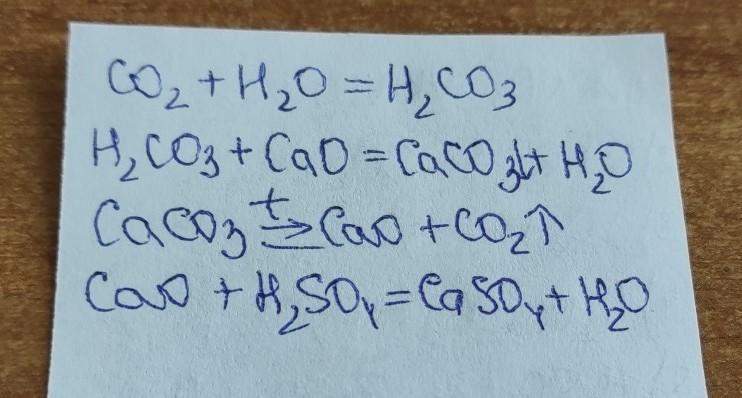 CO₂ + H₂O = H₂CO₃
H₂CO₃ + CaO = CaCO₃↓ + H₂O
CaCO₃ =ᵗ> CaO + CO₂↑
CaO + H₂SO₄ = CaSO₄ + H₂O